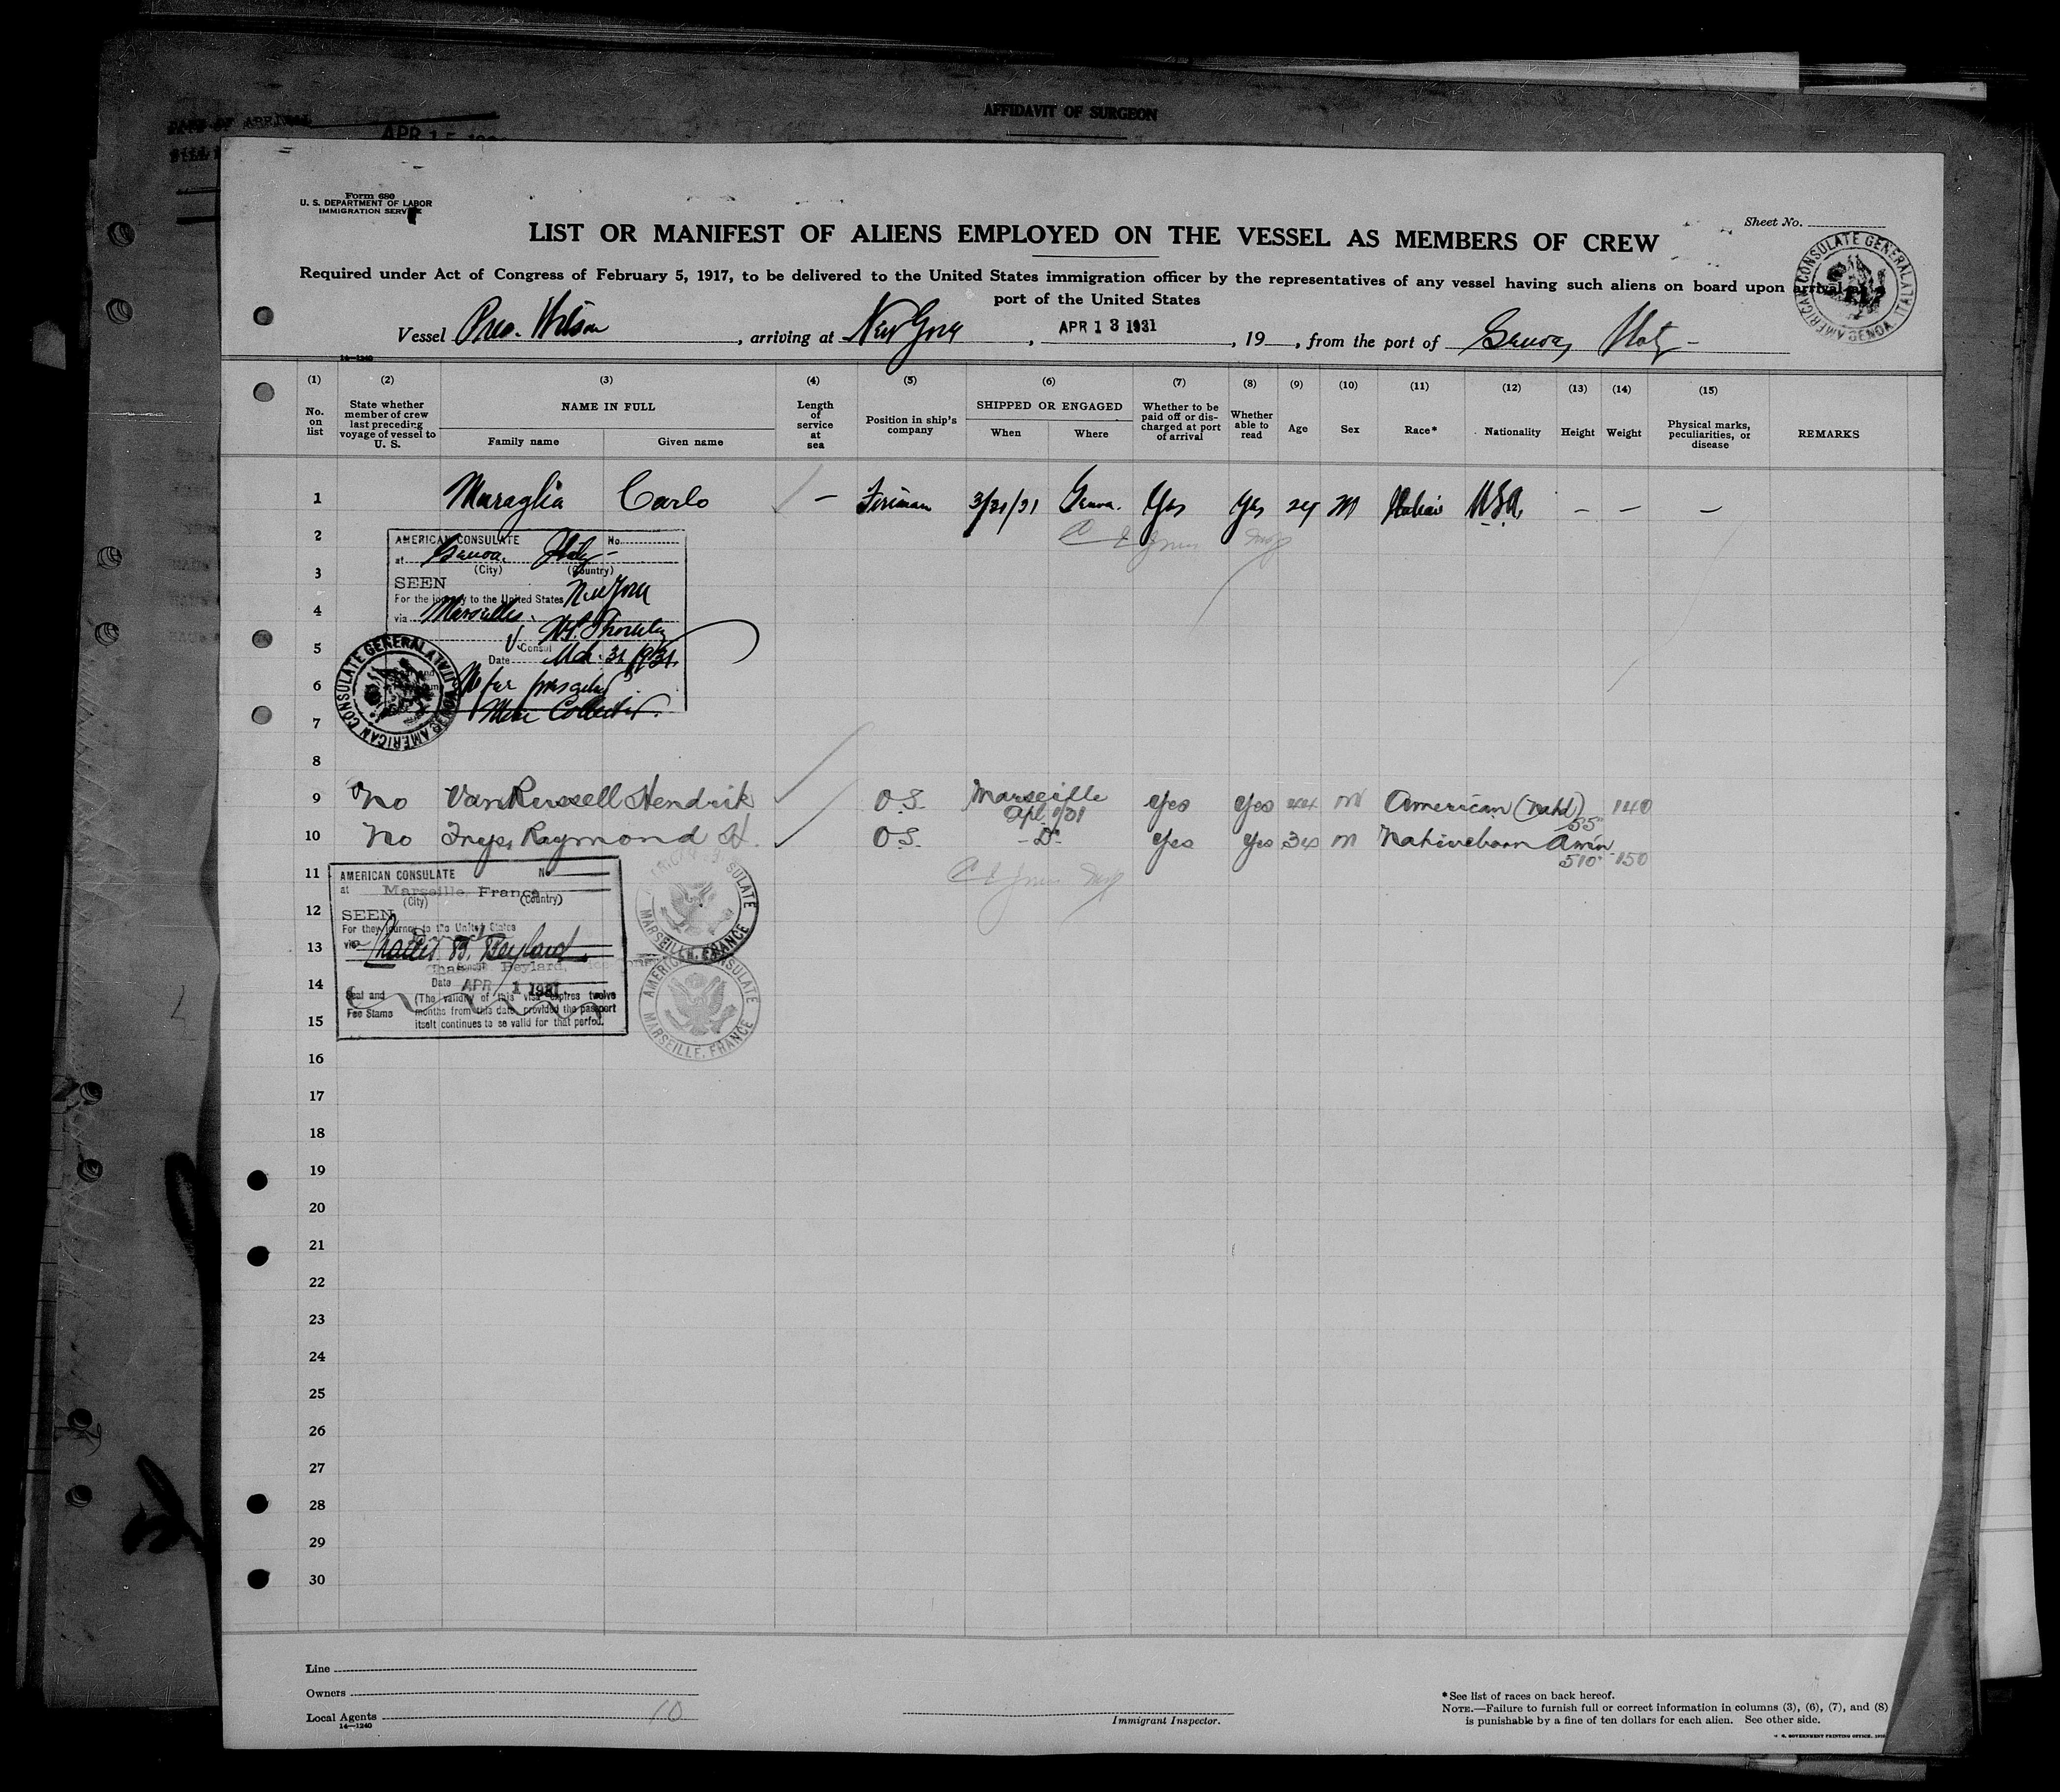 AFFIDAVIT OF SURGEON
DATE OF ARRIVAL
APR 15
Form 680
U. S. DEPARTMENT OF LABOR
IMMIGRATION SERVICE
Sheet No.
LIST OR MANIFEST OF ALIENS EMPLOYED ON THE VESSEL AS MEMBERS OF CREW
Required under Act of Congress of February 5, 1917, to be delivered to the United States immigration officer by the representatives of any vessel having such aliens on board upon arrival
port of the United States
AMERICAN CONSULATE GENERAL GENOA, ITALY
Vessel Pres. Wilson, arriving at New York, APR 13 1931, 19, from the port of Genoa, Italy-
14-1240
(1) (2) (3) (4) (5) (6) (7) (8) (9) (10) (11) (12) (13) (14) (15)
No. on list
State whether member of crew last preceding voyage of vessel to U. S.
NAME IN FULL
Family name
Given name
Length of service at sea
Position in ship's company
SHIPPED OR ENGAGED
When
Where
Whether to be paid off or discharged at port of arrival
Whether able to read
Age
Sex
Race*
Nationality
Height
Weight
Physical marks, peculiarities, or disease
REMARKS
1 Maraglia Carlo - Fireman 3/31/31 Genoa. Yes Yes 24 M Italian USA. - - -
2
3
4
5
6
7
8
AMERICAN CONSULATE No.
at Genoa, Italy-
(City) (Country)
SEEN
For the journey to the United States New York
via Marseilles.
Consul
Date Mch. 31 1931.
No fee prescribed
AMERICAN CONSULATE GENERAL GENOA, ITALY
9 No Van Russell Hendrik O.S. Marseille Apl 1/31 Yes Yes 44 M American (Natd) 55" 140
10 No Raymond H. O.S. -Do- Yes Yes 34 M Native born Amn 510" 150
11
12
13
14
15
AMERICAN CONSULATE No
at Marseille, France
(City) (Country)
SEEN
For the journey to the United States
via
Beylard,
Date APR 1 1931
Seal and
Fee Stamp
(The validity of this visa expires twelve
months from this date provided the passport
itself continues to be valid for that period.
AMERICAN CONSULATE MARSEILLE, FRANCE
AMERICAN CONSULATE MARSEILLE, FRANCE
16
17
18
19
20
21
22
23
24
25
26
27
28
29
30
Line
Owners
Local Agents 10
14-1240
Immigrant Inspector.
*See list of races on back hereof.
NOTE.—Failure to furnish full or correct information in columns (3), (6), (7), and (8)
is punishable by a fine of ten dollars for each alien. See other side.
U. S. GOVERNMENT PRINTING OFFICE